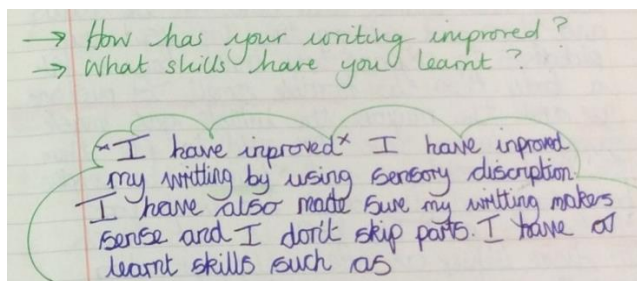 → How has your writing improved?
→ What skills have you learnt?
*I have inproved* I have inproved
my writting by using sensory discription.
I have also made sure my writting makes
sense and I don't skip parts. I have
learnt skills such as